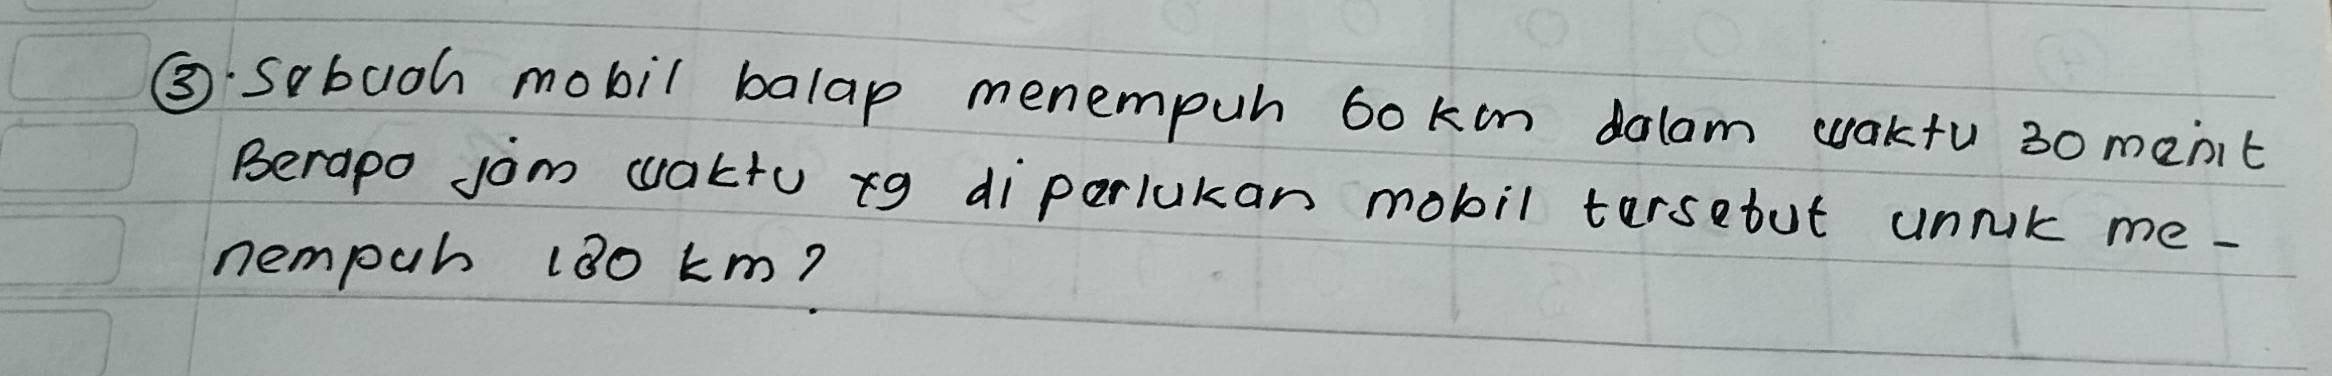 ③. Sebuah mobil balap menempuh 60 km dalam waktu 30 menit
Berapa jam waktu yg diperlukan mobil tersebut untuk me-
nempuh 180 km?